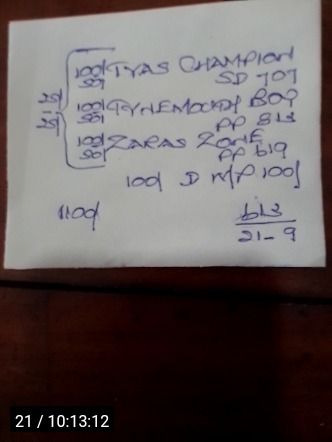 100/ TYAS CHAMPION
50/ SD 707
100/ TYNEMOUTH BOP
50/ PP 813
100/ ZARAS ZONE
50/ PP 619
100/ D M/P 100/
1100/
613
21-9
21 / 10:13:12